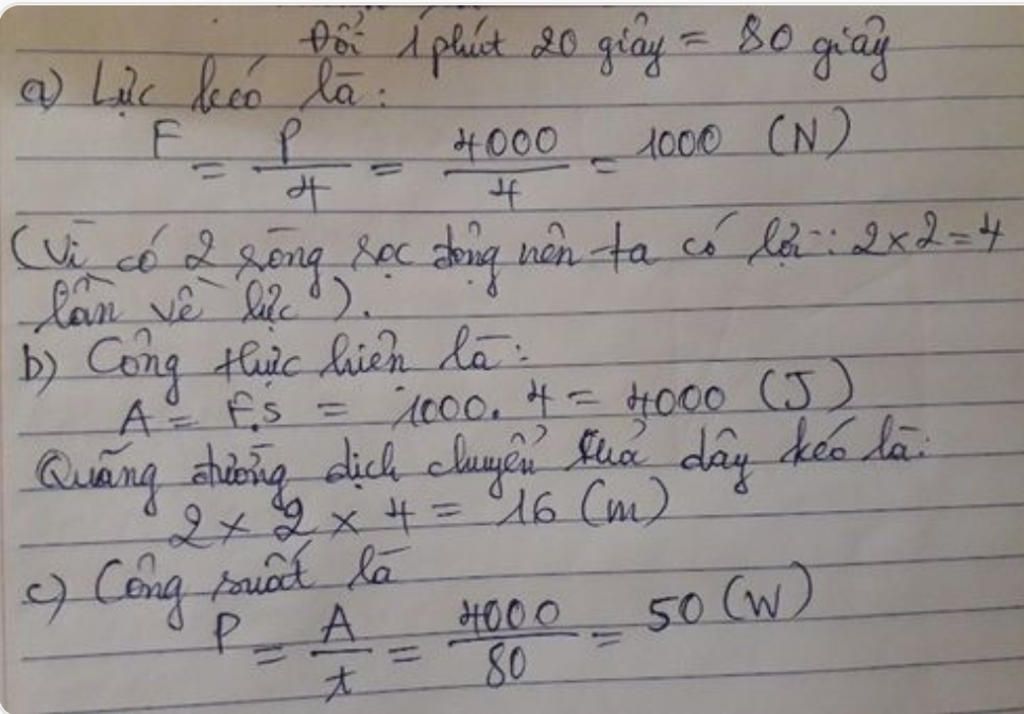 Đổi 1 phút 20 giây = 80 giây
a) Lực kéo là:
F = P/4 = 4000/4 = 1000 (N)
(Vì có 2 ròng rọc động nên ta có lợi: 2 x 2 = 4
lần về lực).
b) Công thực hiện là:
A = F.S = 1000. 4 = 4000 (J)
Quãng đường dịch chuyển của dây kéo là:
2 x 2 x 4 = 16 (m)
c) Công suất là
P = A/t = 4000/80 = 50 (W)